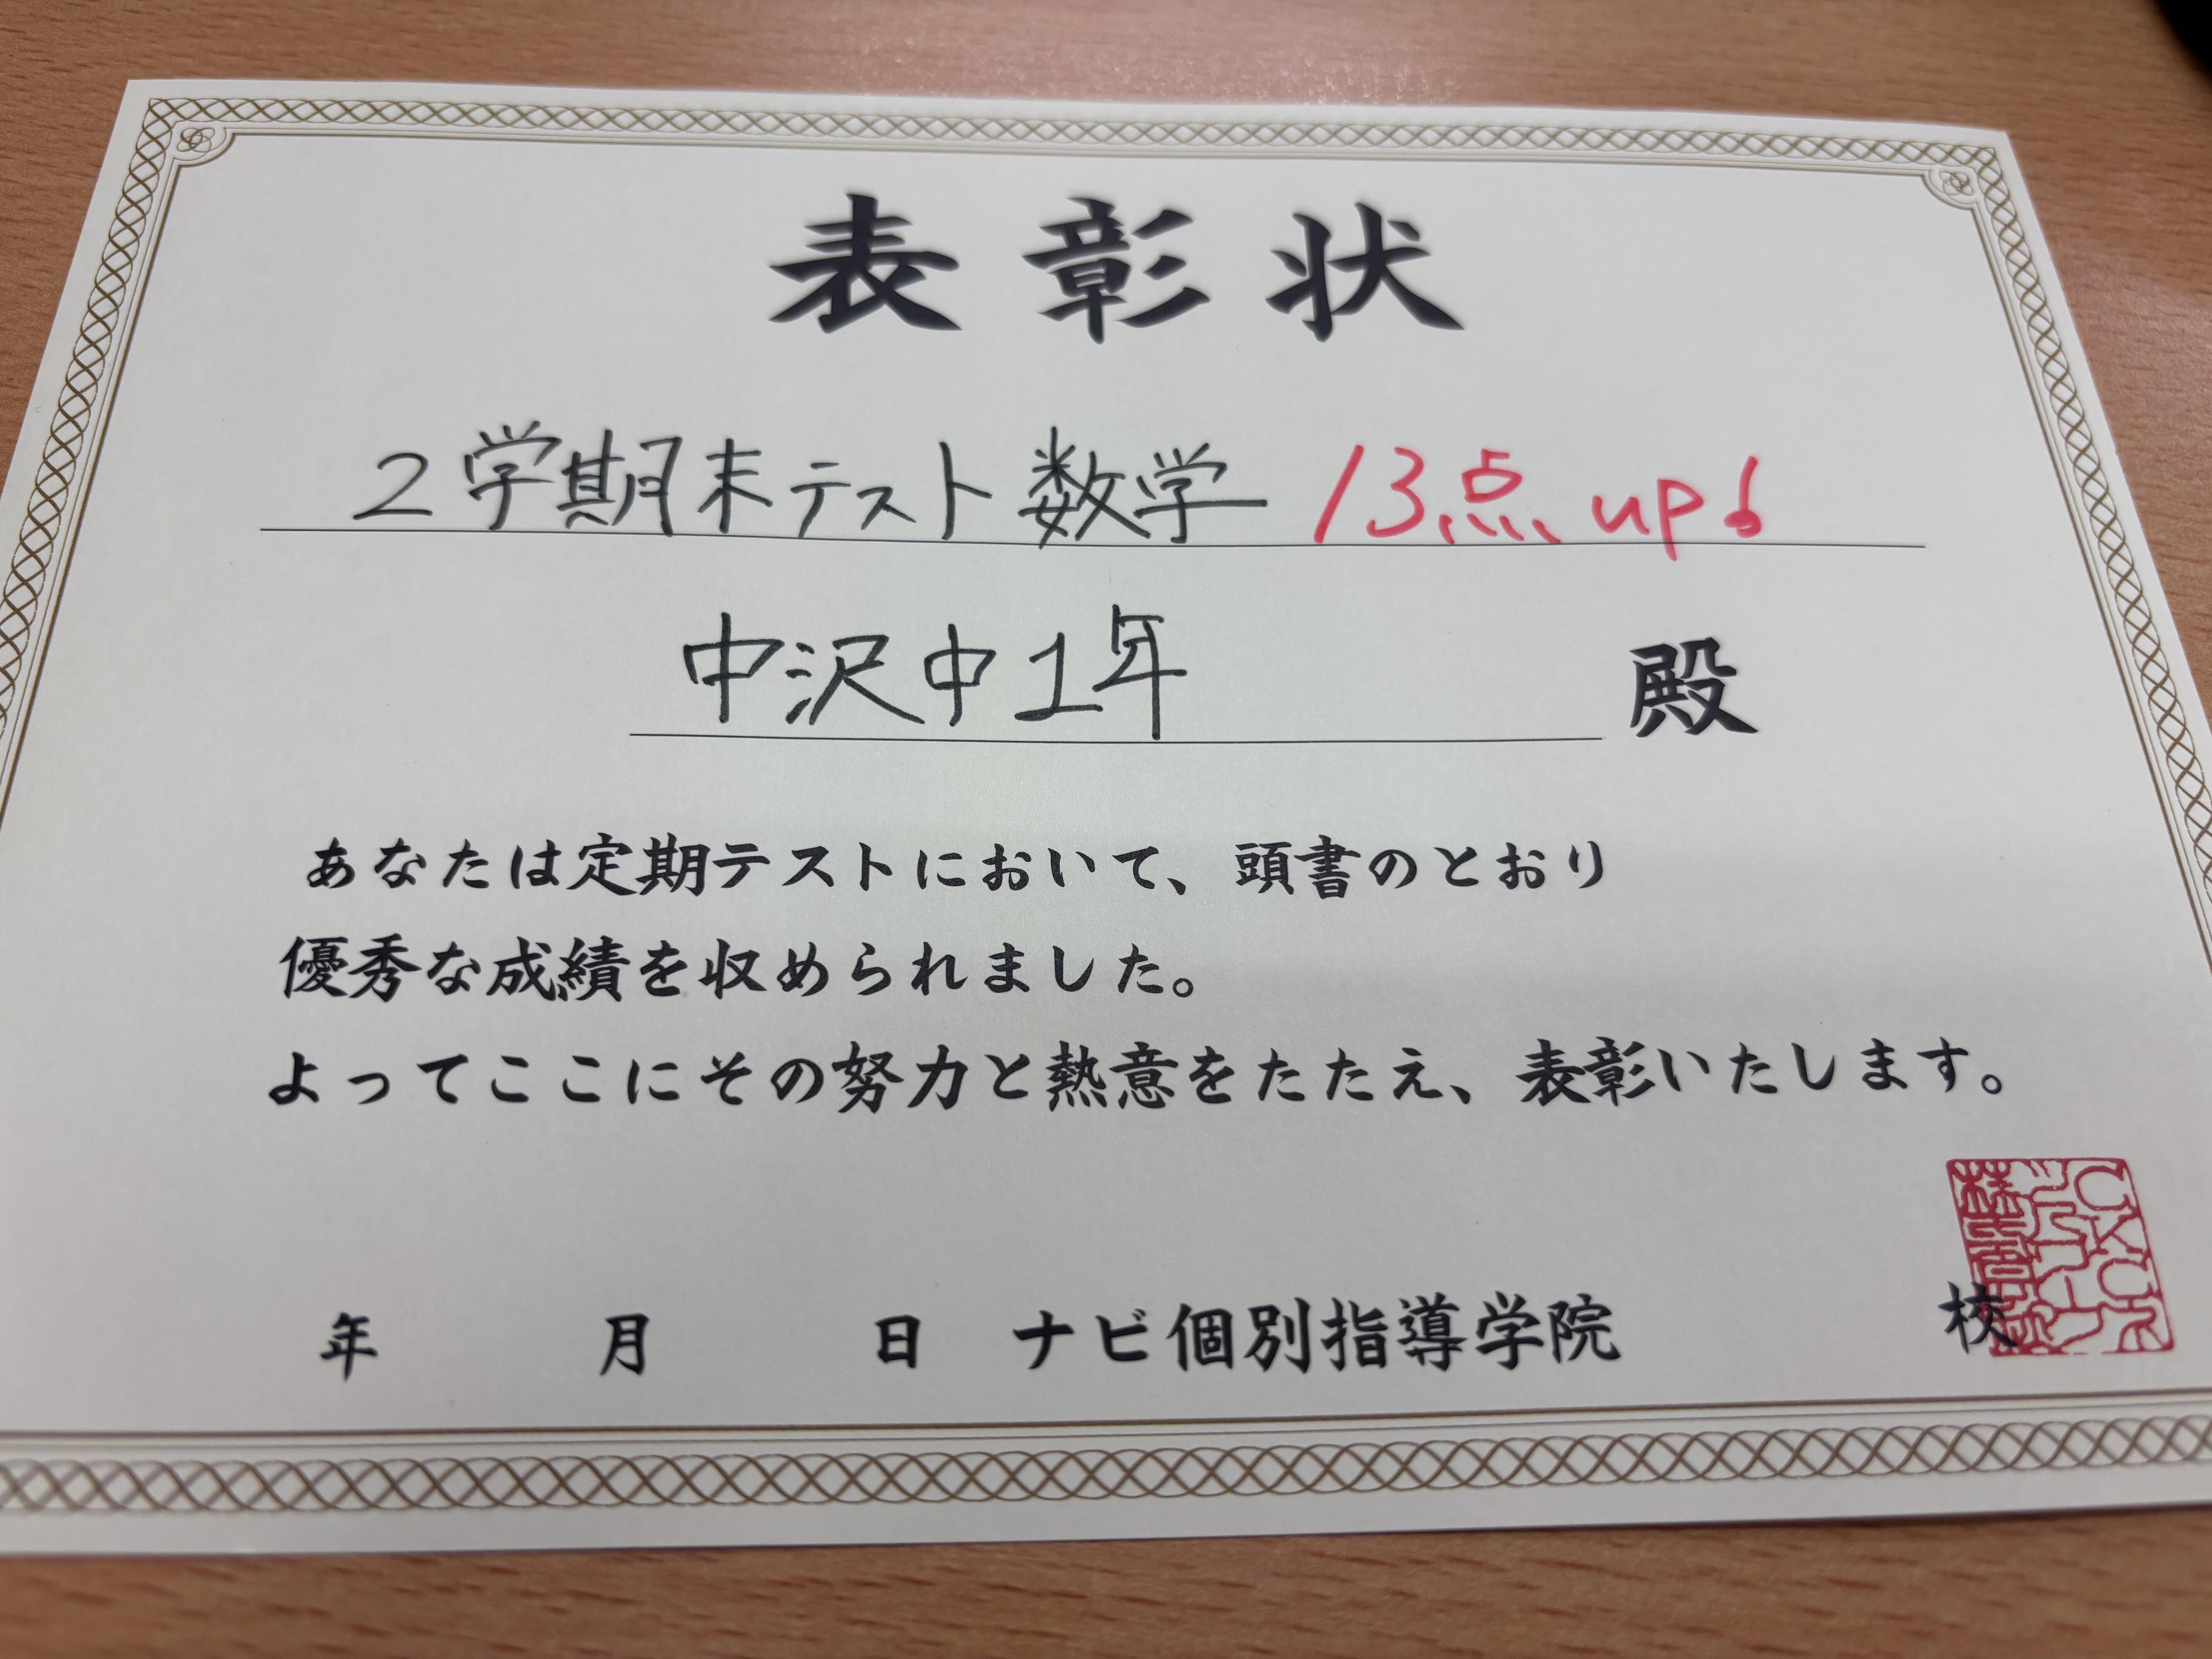 表彰状
2学期期末テスト数学 13点up!
中沢中1年 殿
あなたは定期テストにおいて、頭書のとおり
優秀な成績を収められました。
よってここにその努力と熱意をたたえ、表彰いたします。
年 月 日 ナビ個別指導学院 校